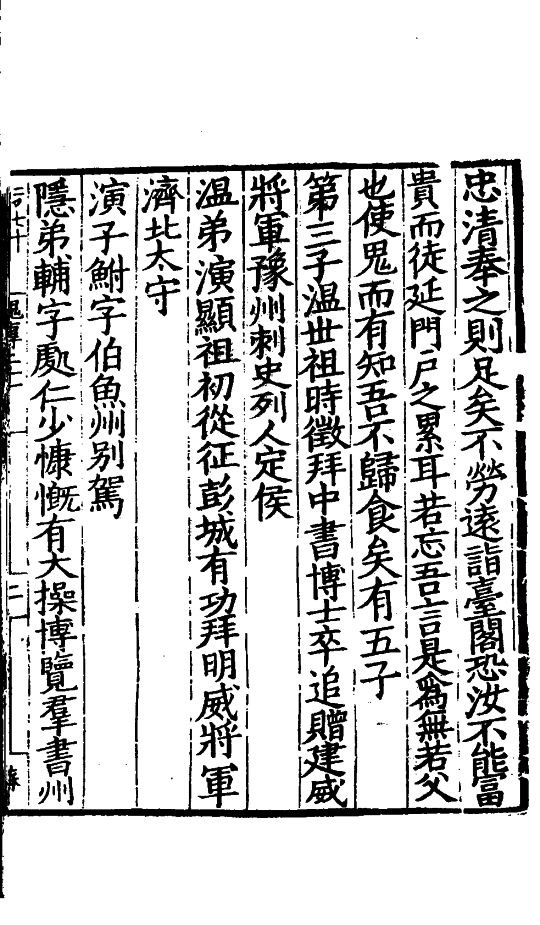 忠清奉之則足矣不勞遠詣臺閣恐汝不能富
貴而徒延門戶之累耳若忘吾言是爲無若父
也使鬼而有知吾不歸食矣有五子
第三子温丗祖時徵拜中書博士卒追贈建威
將軍豫州刺史列人定侯
温弟演顯祖初從征彭城有功拜明威將軍
濟北太守
演子鮒字伯魚州别駕
隱弟輔字處仁少慷慨有大操博覽羣書州